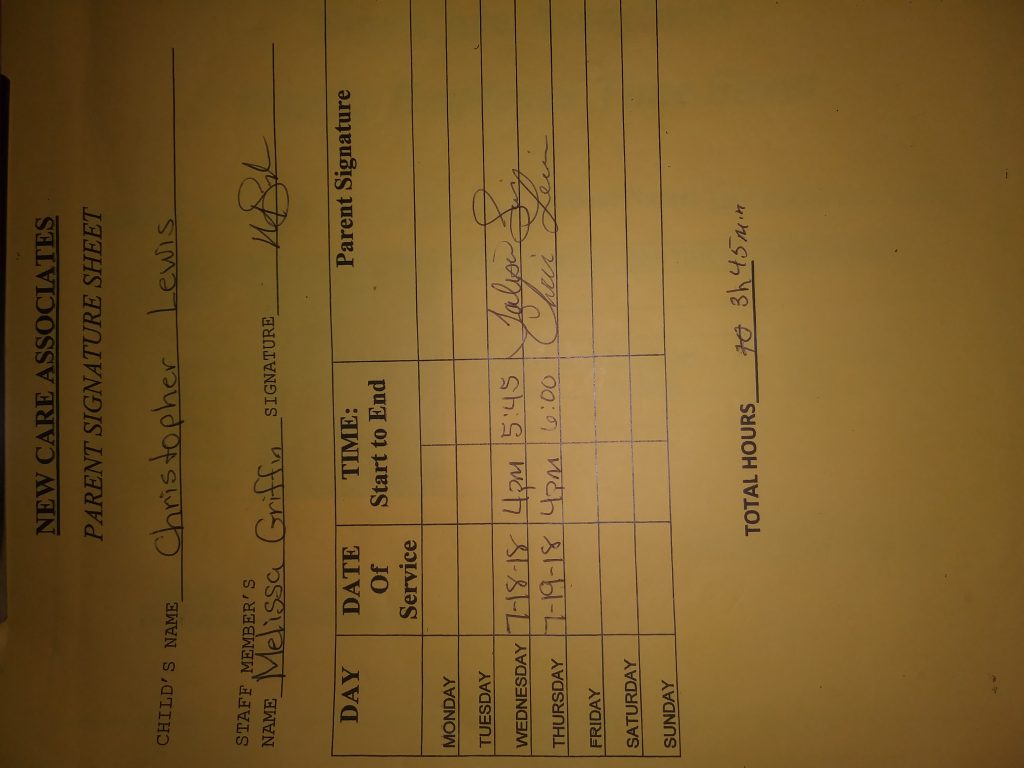 NEW CARE ASSOCIATES
PARENT SIGNATURE SHEET
CHILD'S NAME Christopher Lewis
STAFF MEMBER'S
NAME Melissa Griffin SIGNATURE
DAY DATE Of Service TIME: Start to End Parent Signature
MONDAY
TUESDAY
WEDNESDAY 7-18-18 4pm 5:45
THURSDAY 7-19-18 4pm 6:00
FRIDAY
SATURDAY
SUNDAY
TOTAL HOURS 3h 45min